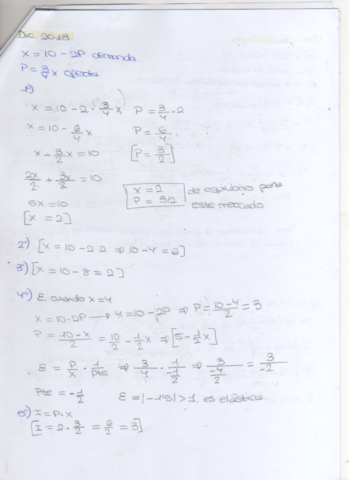 Dic 2013
x = 10 - 2P demanda
P = 3/4 x oferta
1º)
x = 10 - 2 · 3/4 x    P = 3/4 · 2
x = 10 - 6/4 x    P = 6/4
x + 3/2 x = 10    [P = 3/2]
2x/2 + 3x/2 = 10
5x = 10    x = 2    de equilibrio para
[x = 2]    P = 3/2    este mercado
2º) [x = 10 - 2·2 ⇒ 10 - 4 = 6]
3º) [x = 10 - 8 = 2]
4º) E, cuando x = 4
x = 10 - 2P → 4 = 10 - 2P ⇒ P = 10-4/2 = 3
P = 10-x/2 = 10/2 - 1/2 x ⇒ [5 - 1/2 x]
E = P/x · 1/Pte ⇒ 3/4 · 1/-1/2 ⇒ 3/-4/2 = 3/-2
Pte = -1/2    E = |-1'5| > 1, es elástica.
5º) I = P · x
[I = 2 · 3/2 = 6/2 = 3]